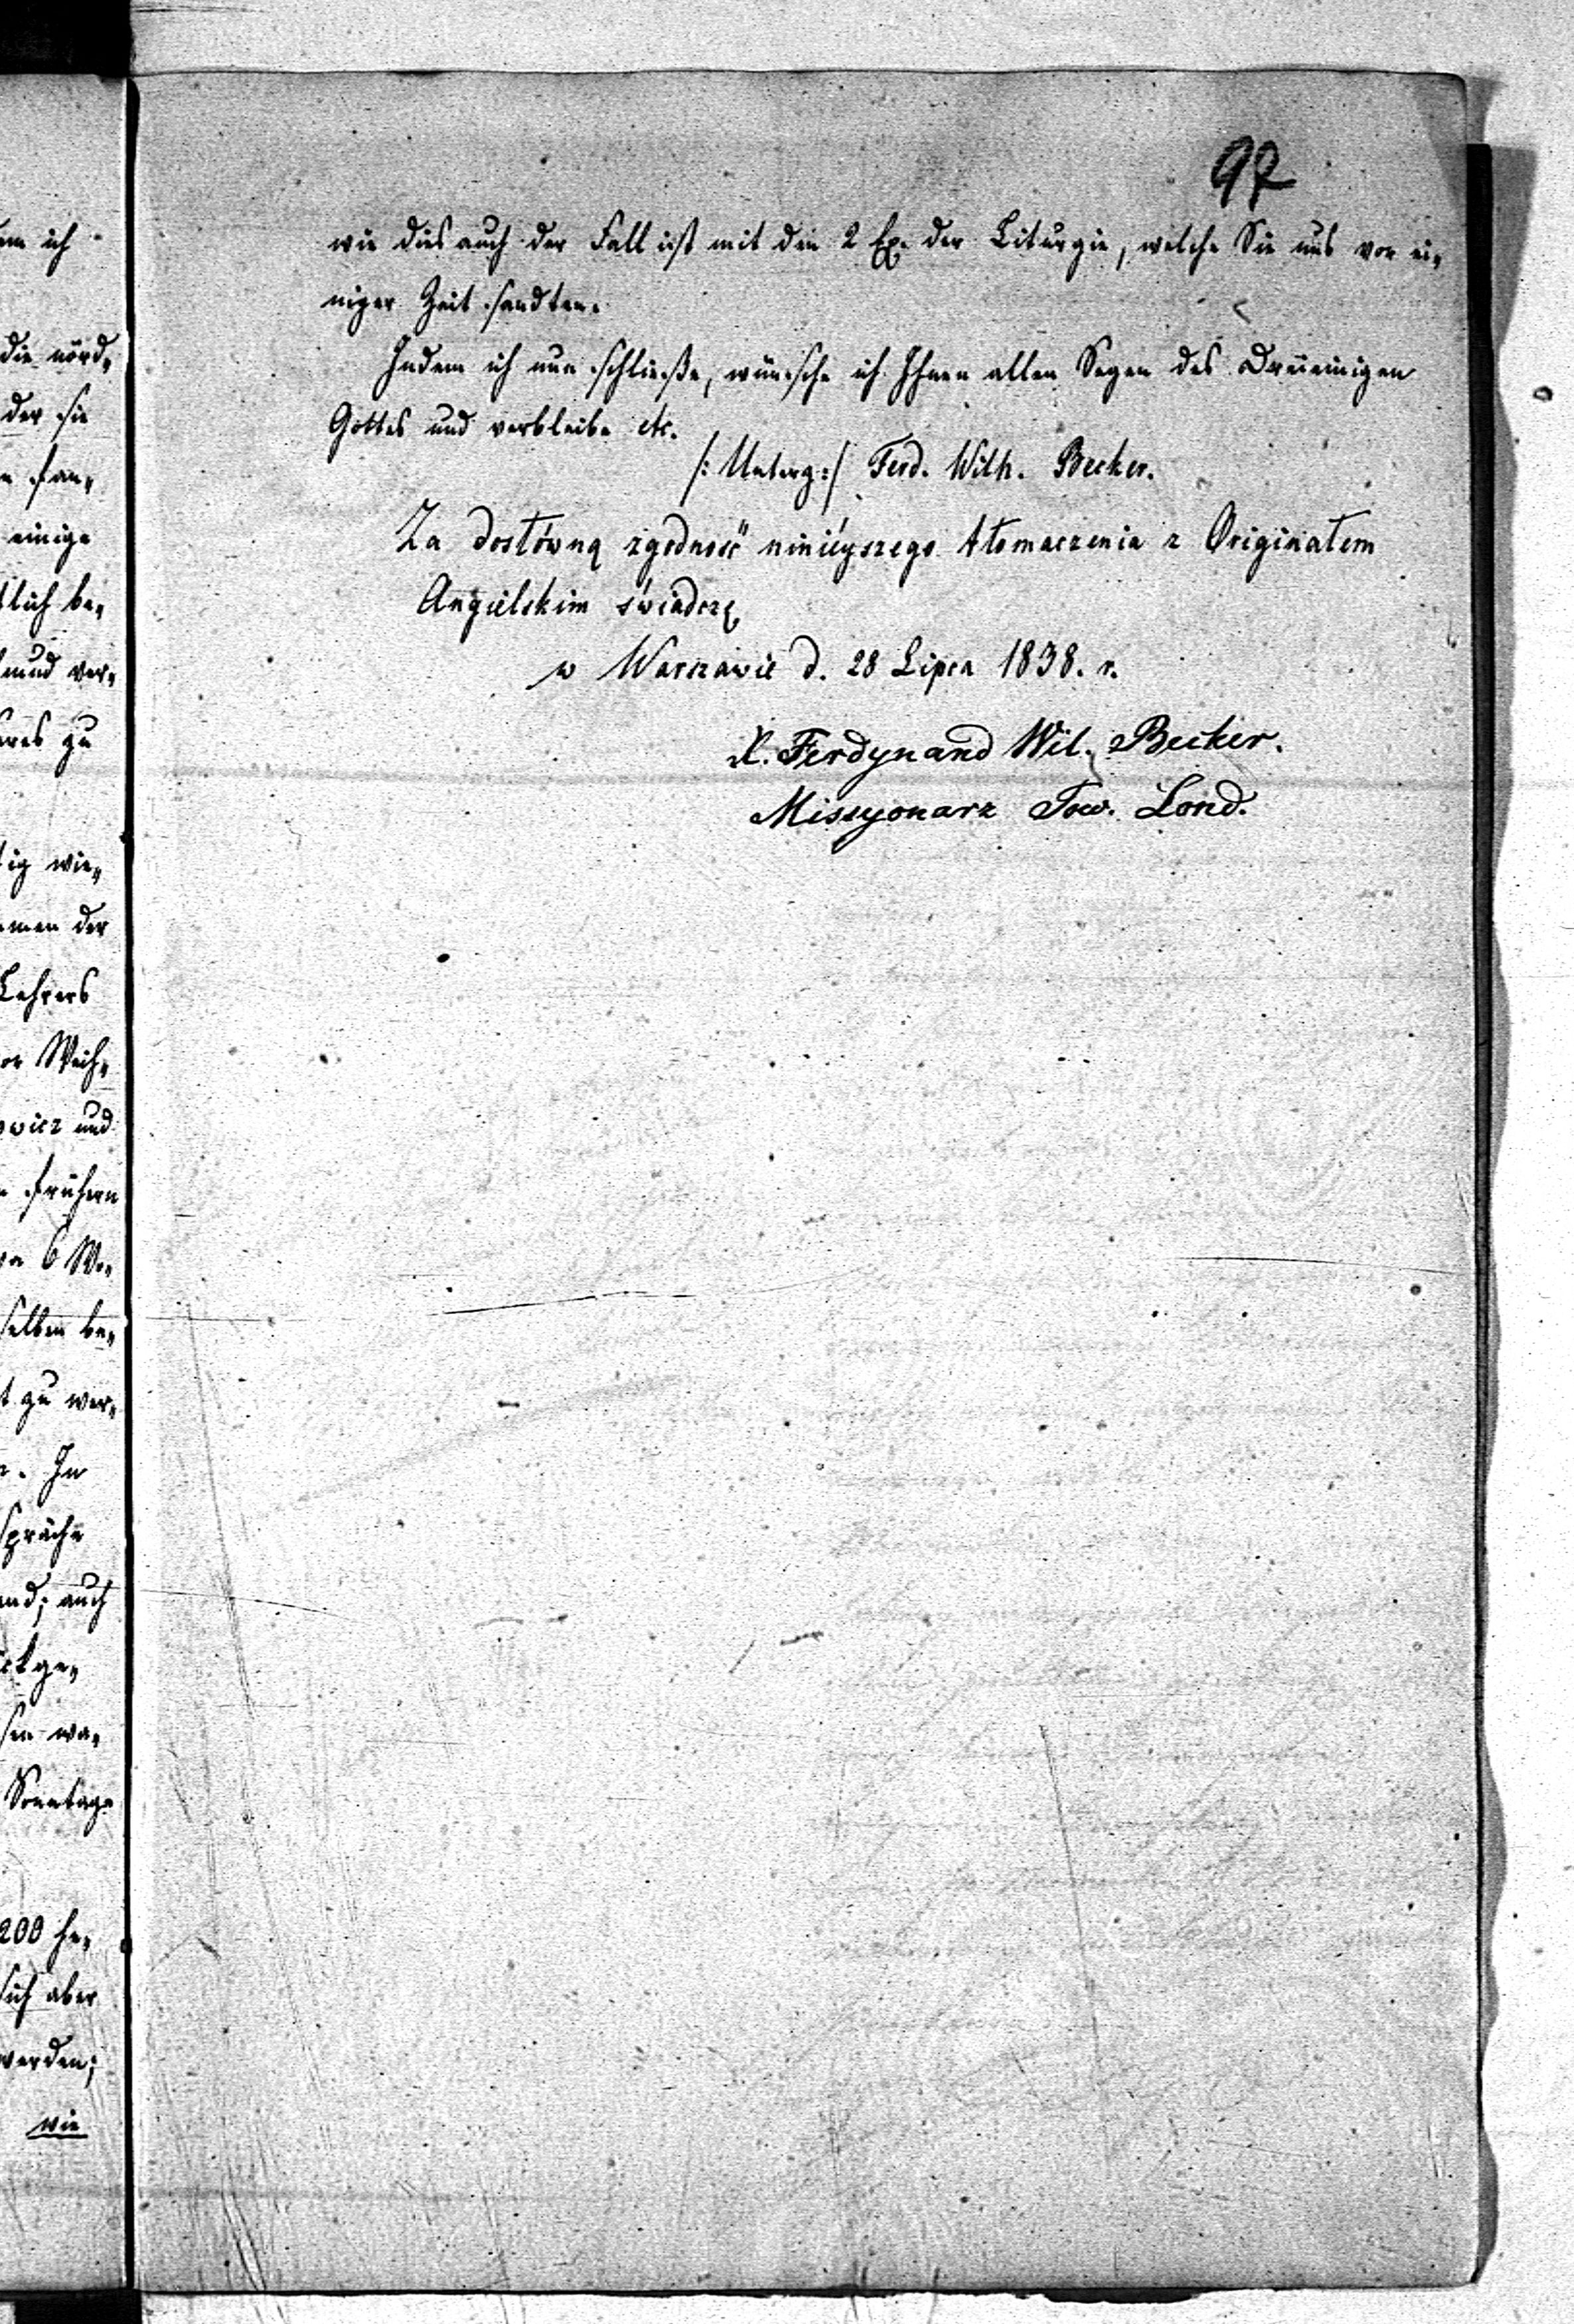 97
wie dies auch der Fall ist mit den 2 Ex. der Liturgie, welche Sie uns vor ei„
niger Zeit sandten.
Indem ich nun schließe, wünsche ich Ihnen allen Segen des Dreieinigen
Gottes und verbleibe etc.
/: Unterz:/ Ferd. Wilh. Becker.
Za dosłówną zgodność ninieyszego tłomaczenia z Originałem
Angielskim świadczę
w Warszawie d. 28 Lipca 1838. r.
X. Ferdynand Wil. Becker.
Missyonarz Tow. Lond.
em ich
die nörd„
der sie
einige
tlich be„
mud ver„
zu
tig wie„
men der
Lehrers
or Weih„
owicz und
frühern
6 Wo„
selben be„
t zu wer„
In
spräche
and; auch
ckge„
sen wa„
Sonntage
200 he„
sich aber
werden;
wie